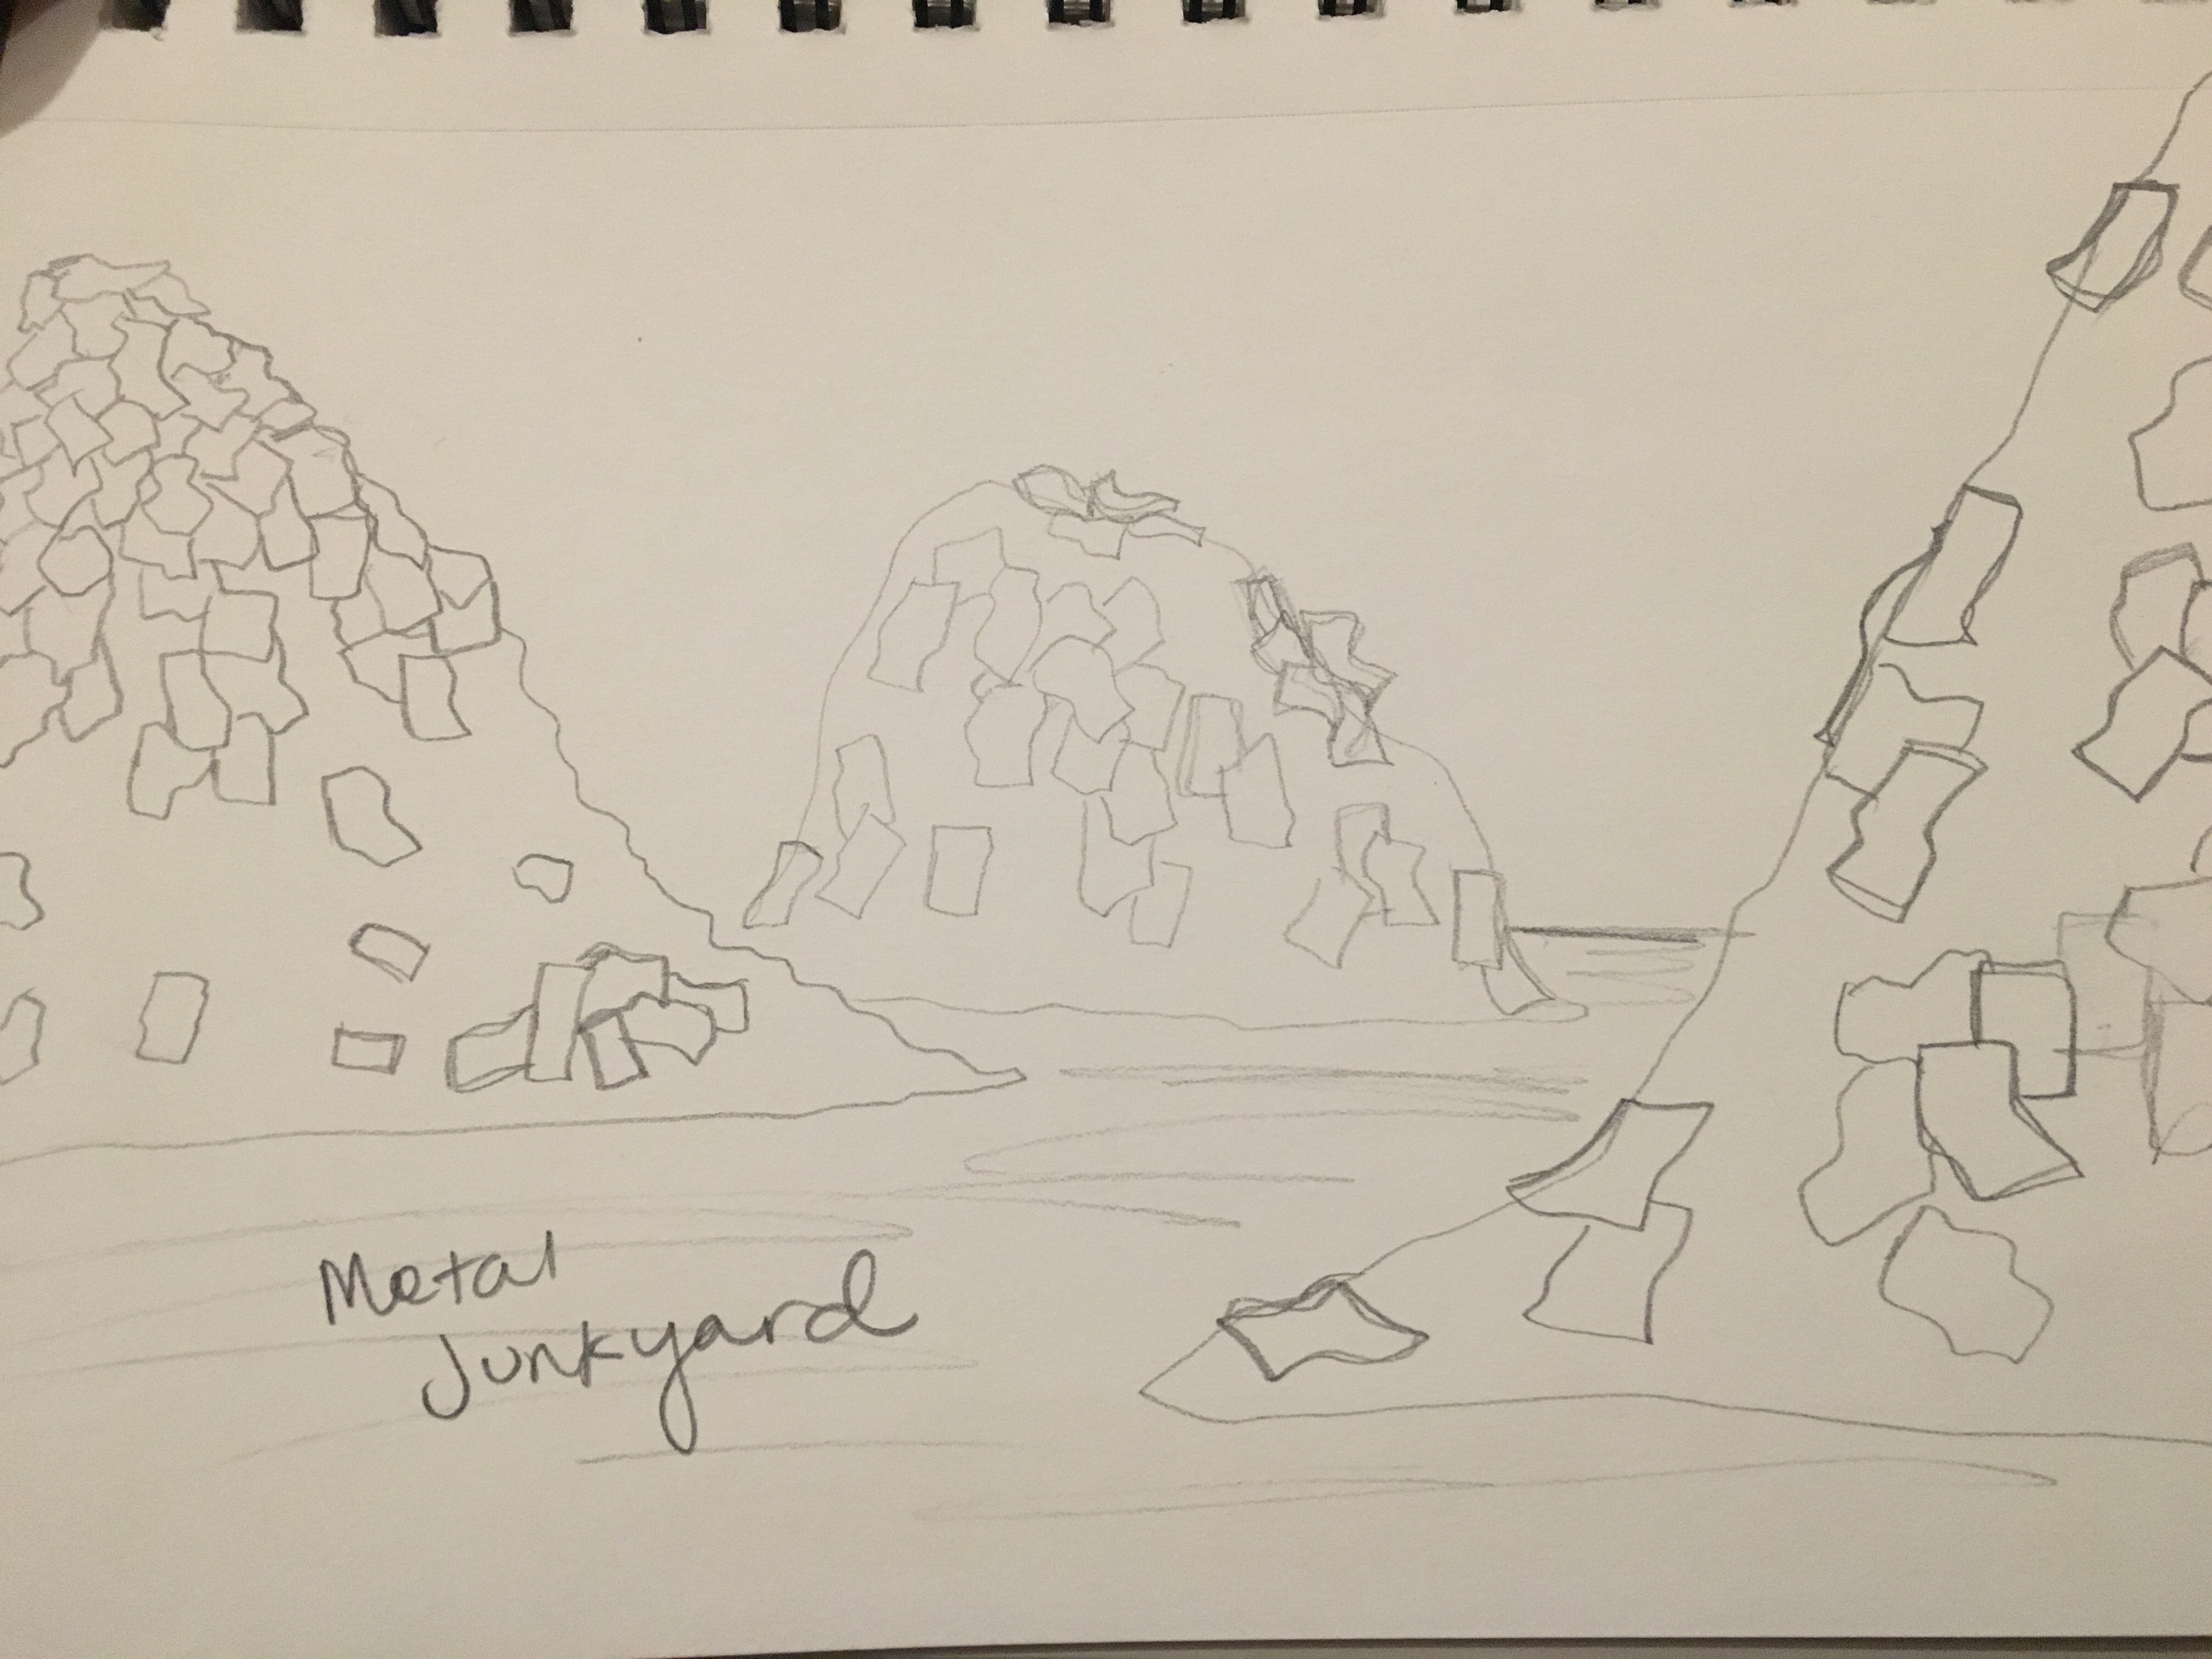 Metal
Junkyard